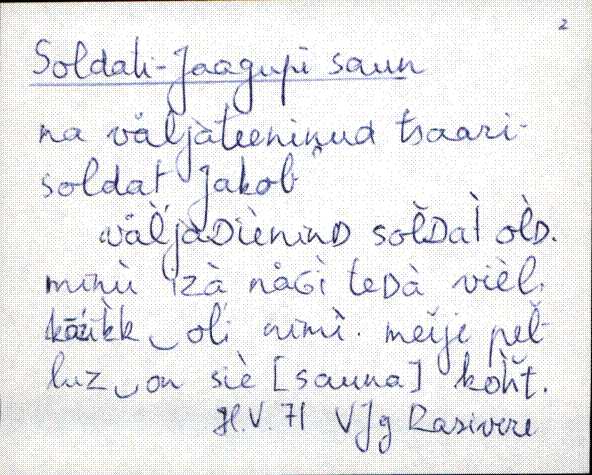 2
Soldati-Jaagupi saun
na väljateeninud tsaari-
soldat Jakob
väl̀jaDièninD sol̆Dat̀ olD.
minù izà nägì teDà vièl.
oli nimì. meìje pel̆-
luz‿on siè [sauna] koh̀t.
H.V. 71 VJg Rasivere